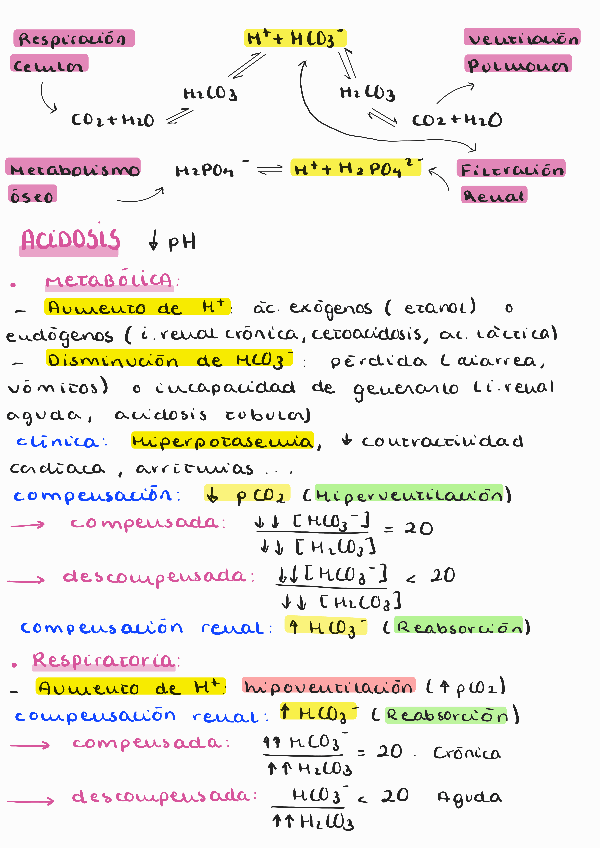 Respiración H+ + HCO3- Ventilación
Celular Pulmonar
H2CO3 H2CO3
CO2 + H2O CO2 + H2O
Metabolismo H2PO4- H+ + H2PO4 2- Filtración
óseo Renal
ACIDOSIS ↓ pH
• METABÓLICA:
- Aumento de H+: ác. exógenos (etanol) o
endógenos (i. renal crónica, cetoacidosis, ac. láctica)
- Disminución de HCO3-: pérdida (diarrea,
vómitos) o incapacidad de generarlo (i. renal
aguda, acidosis tubular)
clínica: Hiperpotasemia, ↓ contractilidad
cardíaca, arritmias ...
compensación: ↓ pCO2 (Hiperventilación)
→ compensada: ↓↓ [HCO3-] / ↓↓ [H2CO3] = 20
→ descompensada: ↓↓ [HCO3-] / ↓↓ [H2CO3] < 20
compensación renal: ↑ HCO3- (Reabsorción)
• Respiratoria:
- Aumento de H+: hipoventilación (↑ pCO2)
compensación renal: ↑ HCO3- (Reabsorción)
→ compensada: ↑↑ HCO3- / ↑↑ H2CO3 = 20. Crónica
→ descompensada: HCO3- / ↑↑ H2CO3 < 20 Aguda